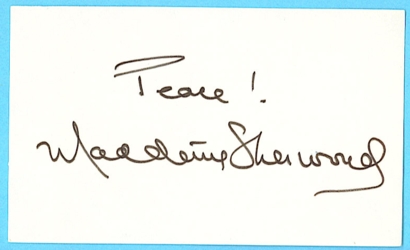 Peace!
Madeleine Sherwood